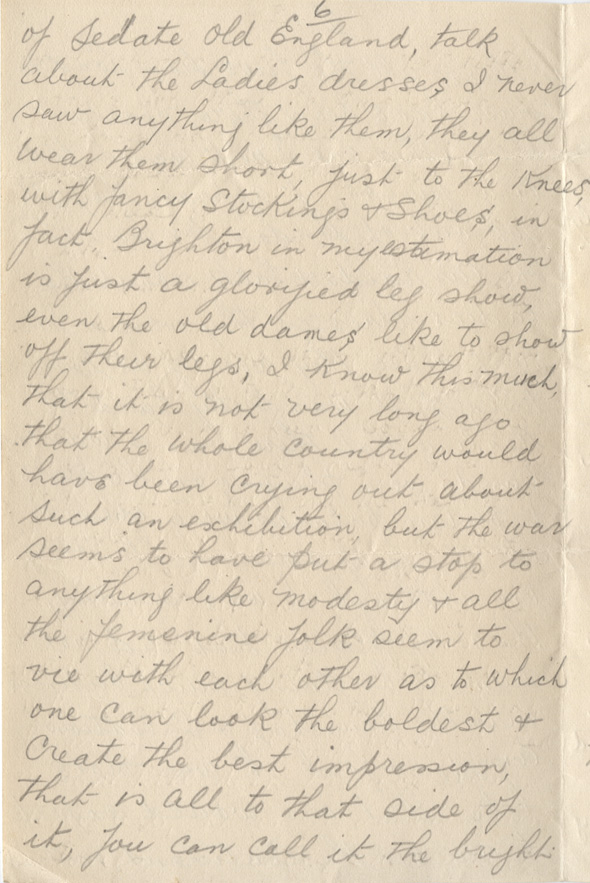 6
of Sedate Old England, talk
about the Ladies dresses, I never
saw anything like them, they all
wear them short, just to the Knees,
with fancy Stockings & Shoes, in
fact. Brighton in my estimation
is just a glorified leg show,
even the old dames, like to show
off their legs, I know this much,
that it is not very long ago
that the whole country would
have been crying out about
such an exhibition, but the war
seems to have put a stop to
anything like modesty & all
the femenine folk seem to
vie with each other as to which
one can look the boldest &
Create the best impression,
that is all to that side of
it, you can call it the bright